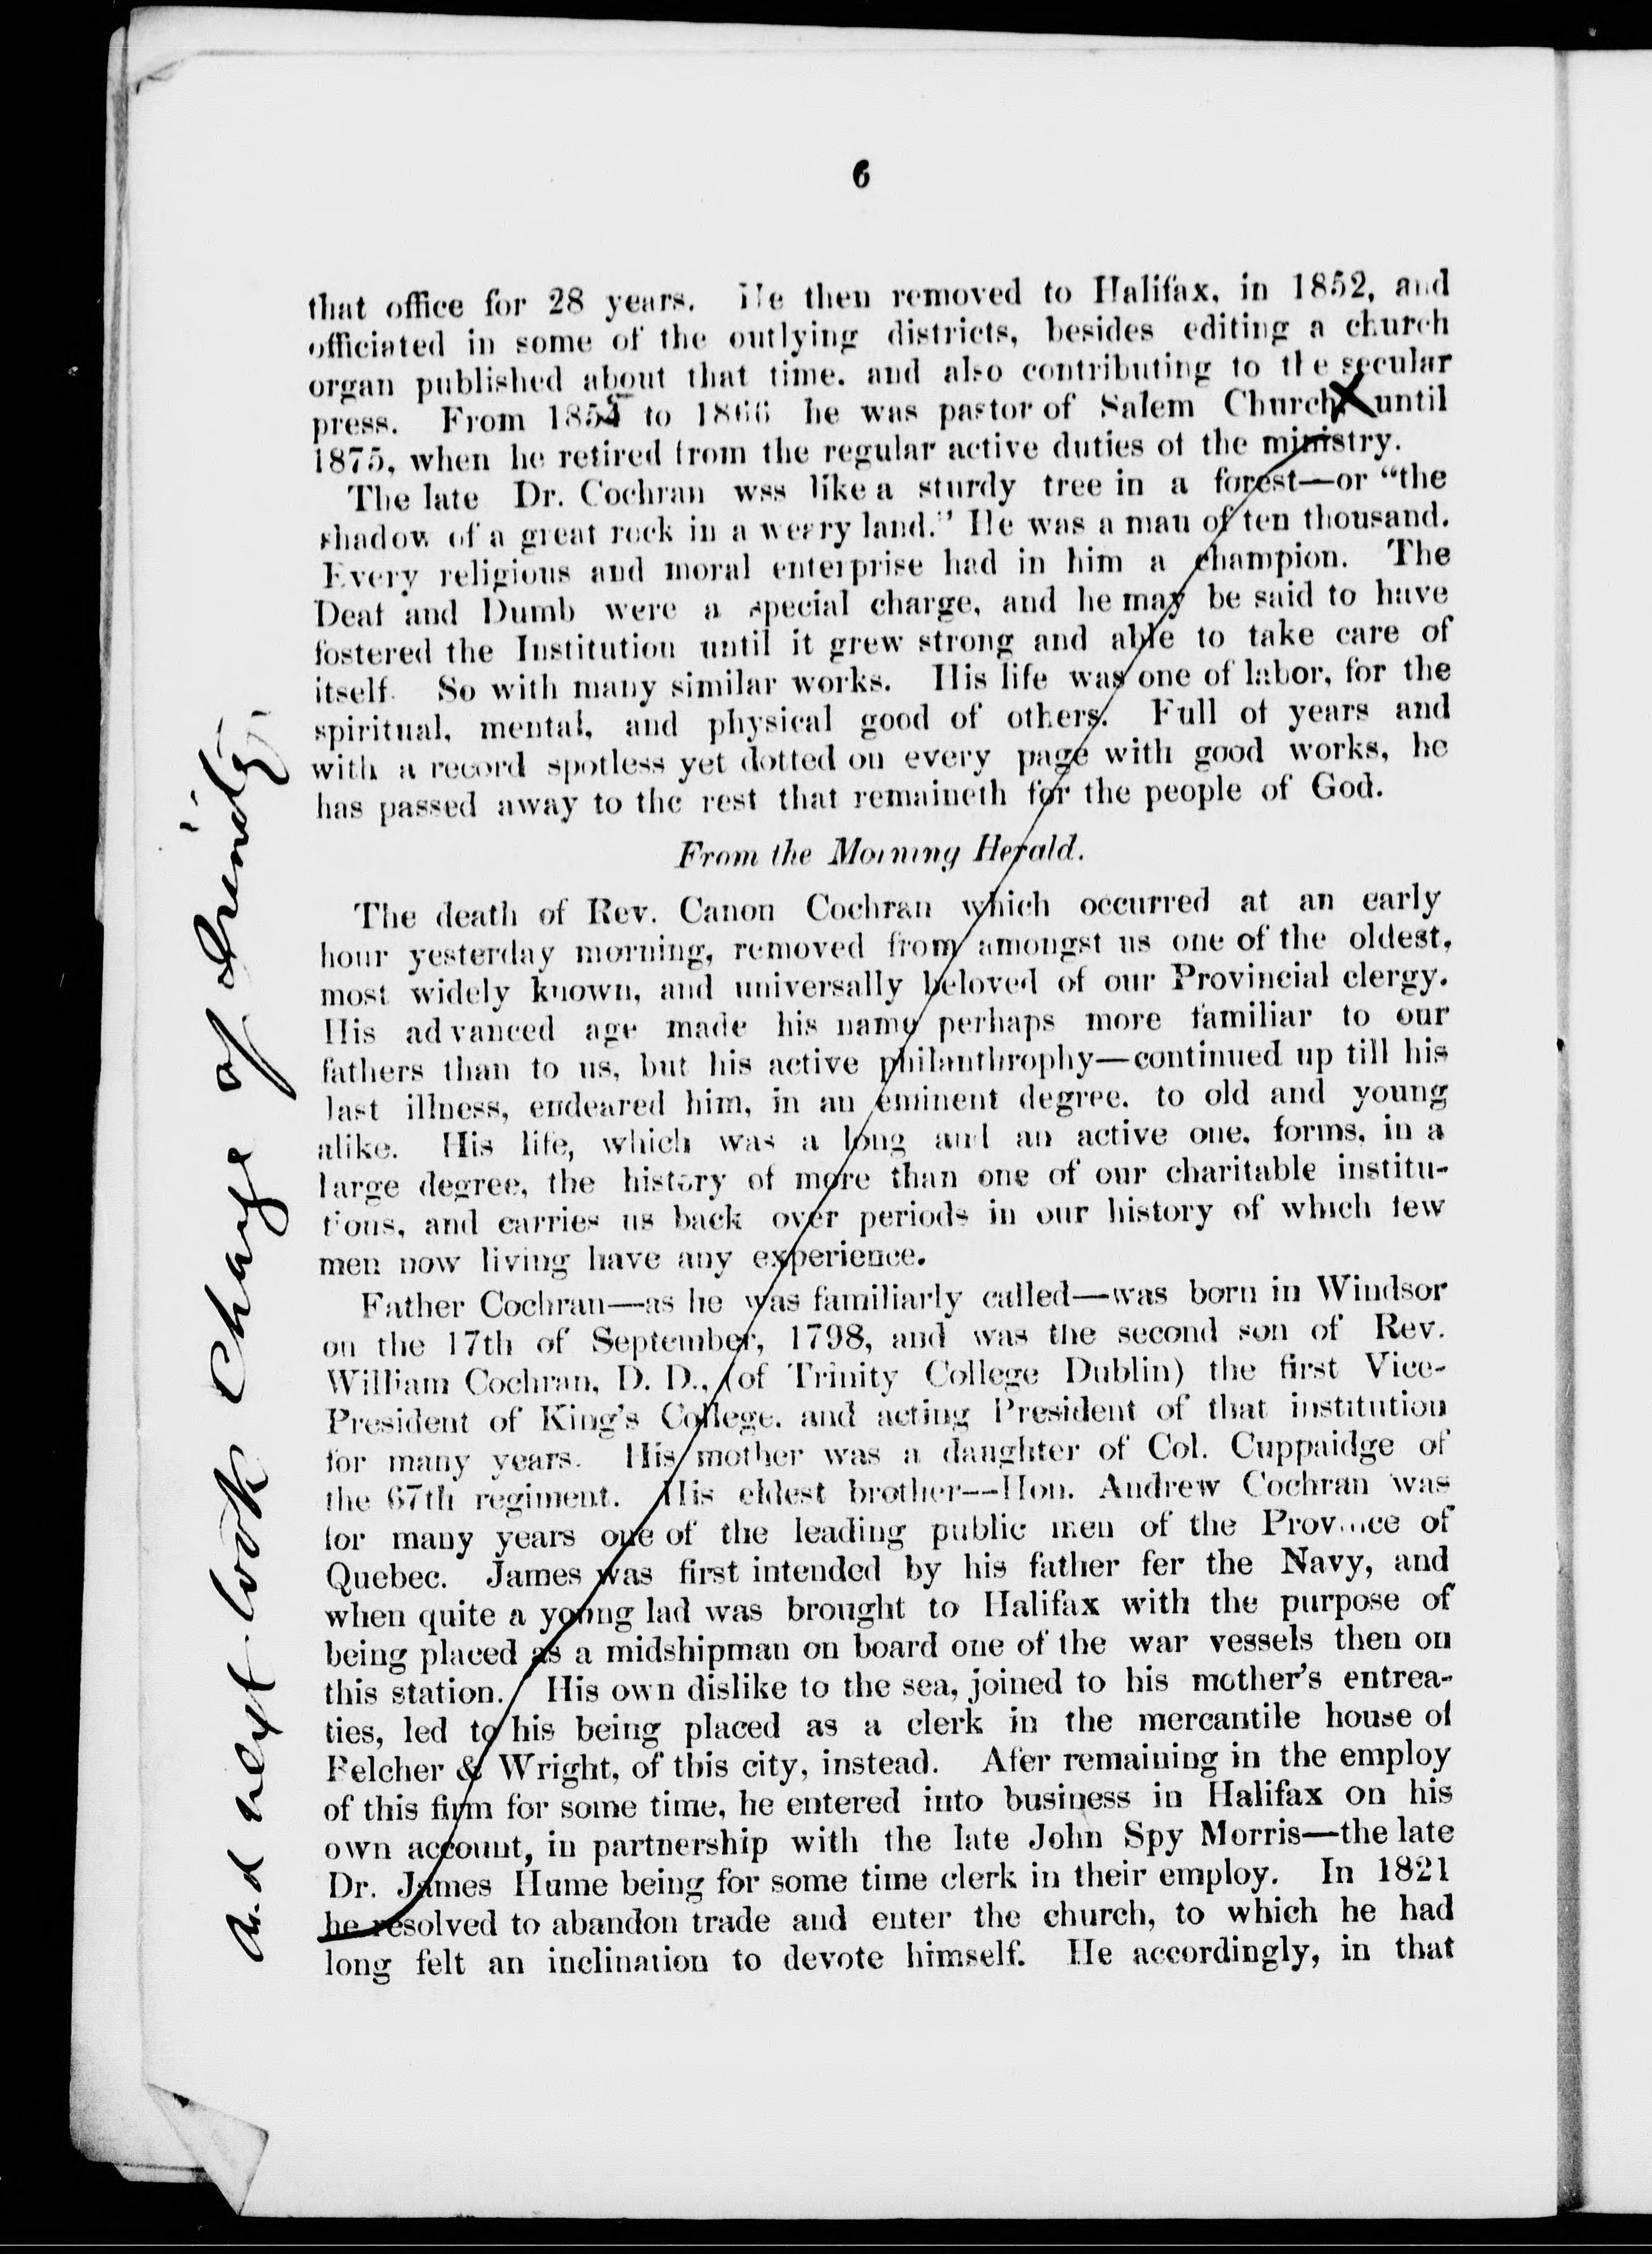 6
that office for 28 years. He then removed to Halifax, in 1852, and
officiated in some of the outlying districts, besides editing a church
organ published about that time. and also contributing to the secular
press. From 185 to 1866 he was pastor of Salem Church, X until
1875, when he retired from the regular active duties of the ministry.
The late Dr. Cochran wss like a sturdy tree in a forest—or “the
shadow of a great rock in a weary land.” He was a man of ten thousand.
Every religious and moral enterprise had in him a champion. The
Deaf and Dumb were a special charge, and he may be said to have
fostered the Institution until it grew strong and able to take care of
itself. So with many similar works. His life was one of labor, for the
spiritual, mental, and physical good of others. Full of years and
with a record spotless yet dotted on every page with good works, he
has passed away to the rest that remaineth for the people of God.
From the Morning Herald.
The death of Rev. Canon Cochran which occurred at an early
hour yesterday morning, removed from amongst us one of the oldest,
most widely known, and universally beloved of our Provincial clergy.
His advanced age made his name perhaps more familiar to our
fathers than to us, but his active philanthrophy—continued up till his
last illness, endeared him, in an eminent degree, to old and young
alike. His life, which was a long and an active one, forms, in a
large degree, the history of more than one of our charitable institu-
tions, and carries us back over periods in our history of which few
men now living have any experience.
Father Cochran—as he was familiarly called—was born in Windsor
on the 17th of September, 1798, and was the second son of Rev.
William Cochran, D. D., (of Trinity College Dublin) the first Vice-
President of King's College. and acting President of that institution
for many years. His mother was a daughter of Col. Cuppaidge of
the 67th regiment. His eldest brother--Hon. Andrew Cochran was
for many years one of the leading public men of the Province of
Quebec. James was first intended by his father fer the Navy, and
when quite a young lad was brought to Halifax with the purpose of
being placed as a midshipman on board one of the war vessels then on
this station. His own dislike to the sea, joined to his mother's entrea-
ties, led to his being placed as a clerk in the mercantile house of
Belcher & Wright, of this city, instead. Afer remaining in the employ
of this firm for some time, he entered into business in Halifax on his
own account, in partnership with the late John Spy Morris—the late
Dr. James Hume being for some time clerk in their employ. In 1821
he resolved to abandon trade and enter the church, to which he had
long felt an inclination to devote himself. He accordingly, in that
and next took charge of Trinity